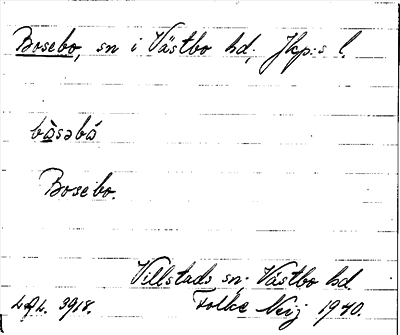 Bosebo, sn i Västbo hd, Jkp:s l.
bòsəbó
Bosebo.
Villstads sn, Västbo hd
LAL. 3918. Folke Neij 1940.